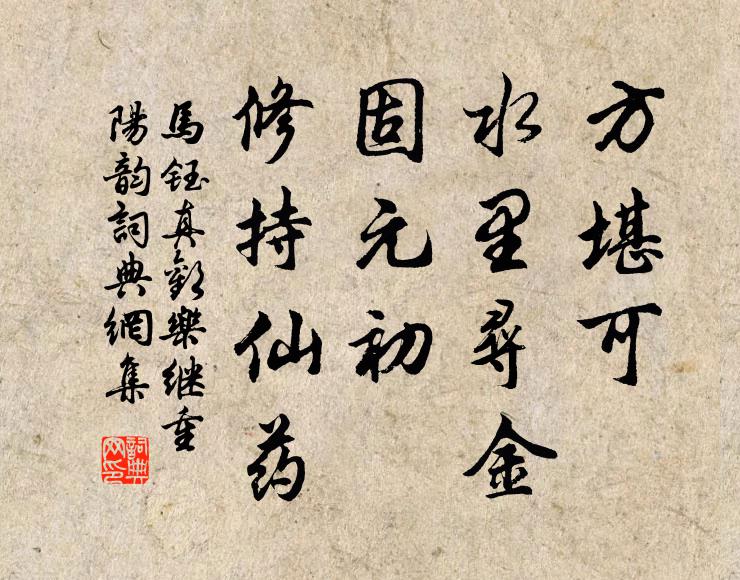 方堪可
水里寻金
固元初
修持仙药
馬钰真欢樂继重
陽韵詞典網集
詞典网印